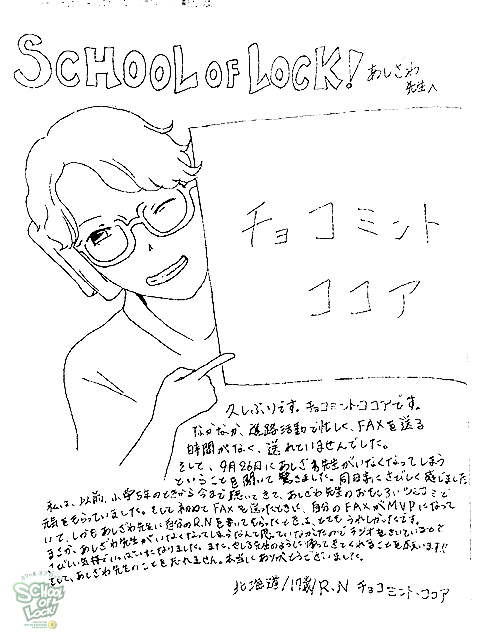 SCHOOL OF LOCK! あしざわ
先生へ
チョコミント
ココア
久しぶりです。チョコミント・ココアです。
なかなか、進路活動で忙しく、FAXを送る
時間がなく、送れていませんでした。
そして、9月26日にあしざわ先生がいなくなってしまう
ということを聞いて驚きました。同時にさびしく感じました
私は、以前、小学5年のときから今まで聴いてきて、あしざわ先生のおもしろい
元気をもらっていました。そして初めてFAXを送ったときに、自分のFAXがMVPになって
いて、しかもあしざわ先生に自分のR.Nを書いてもらったとき、とてもうれしかったです。
まさか、あしざわ先生がいなくなってしまうなんて思っていなかったので
さびしい気持ちでいっぱいになりました。また、やしろ先生のように帰ってきてくれることを願います!!
そして、あしざわ先生のことを忘れません。本当にありがとうございました。
北海道/17歳/R.N チョコミント・ココア
SCHOOL
OF
LOCK!